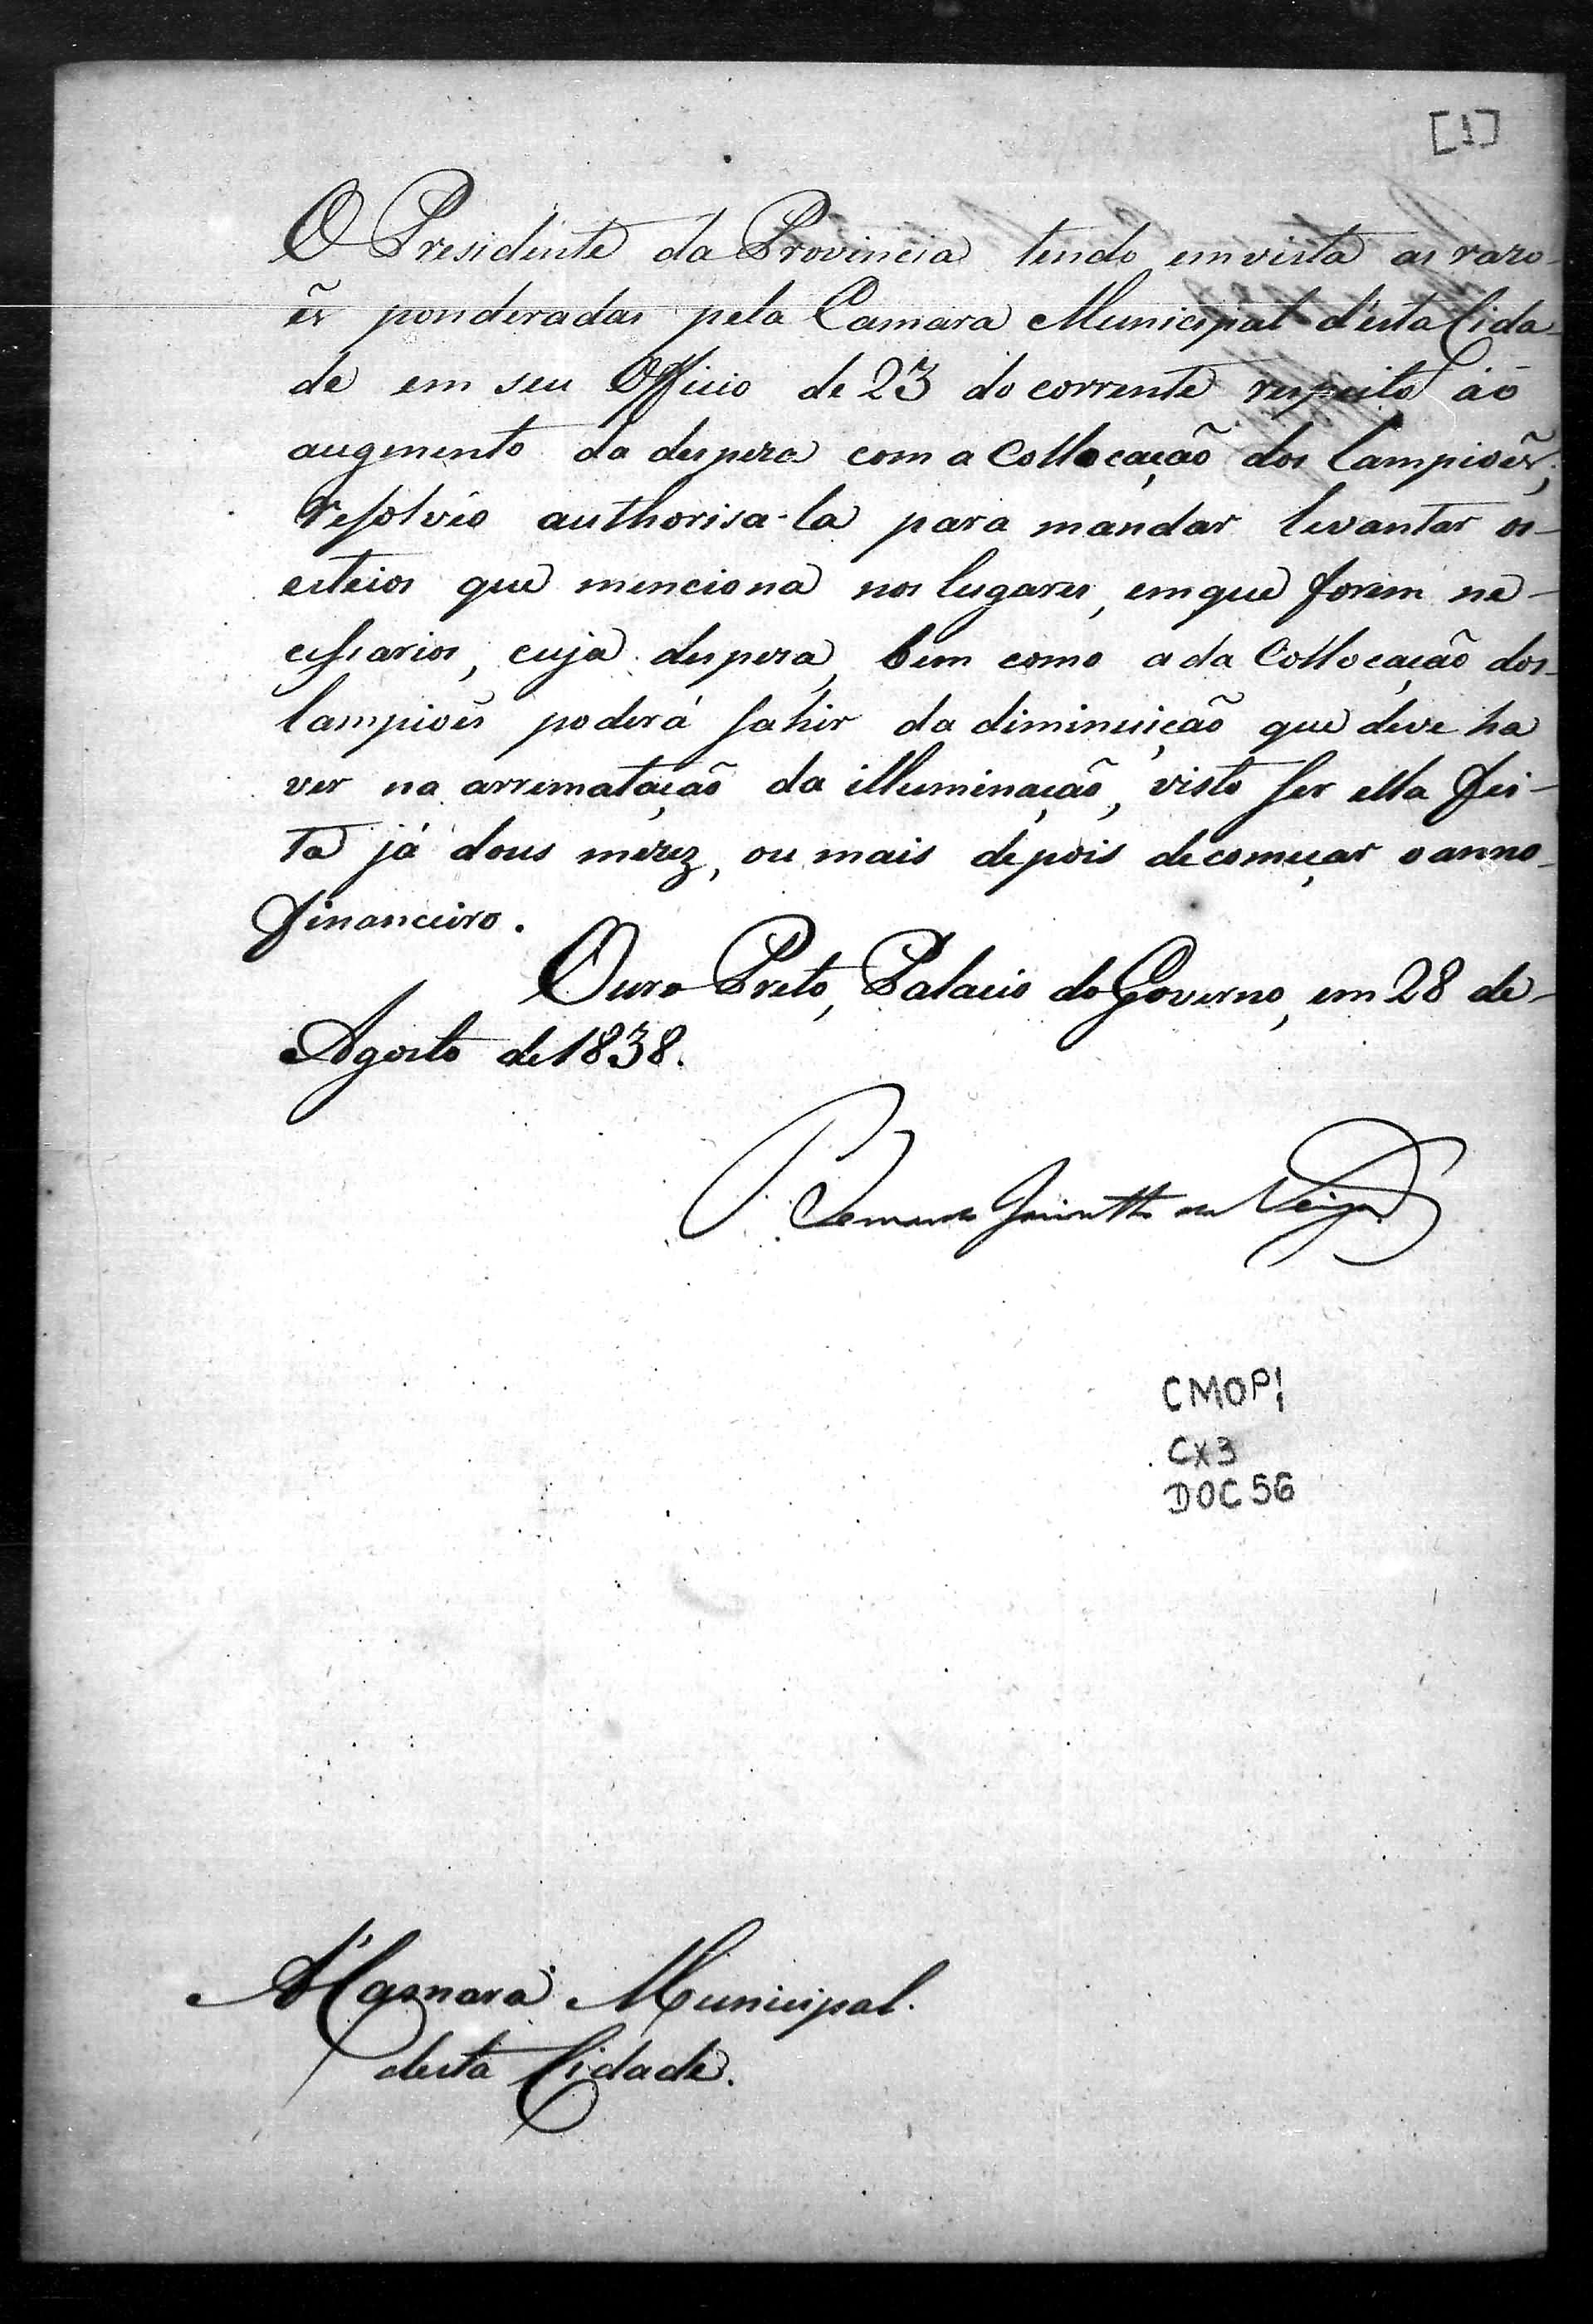 [1]
O Presidente da Provincia tendo em vista as razo-
ẽs ponderadas pela Camara Municipal d'esta Cida-
de em seu Officio de 23 do corrente respeito áo
augmento da despeza com a Collocação dos Lampioẽs,
resolvêo authorisa-la para mandar levantar os
esteios que menciona nos lugares, em que forem ne-
cessarios, cuja despesa, bem como a da Collocação dos
lampioẽs poderá sahir da diminuição que deve ha
ver na arrematação da illuminação, visto ser ella fei-
ta já dous mezez, ou mais depois de começar o anno
financeiro.
Ouro Preto, Palacio do Governo, em 28 de
Agosto de 1838.
Bernardo Jacintho da Veiga
CMOP
CX3
DOC 56
A' Camara Municipal.
desta Cidade.